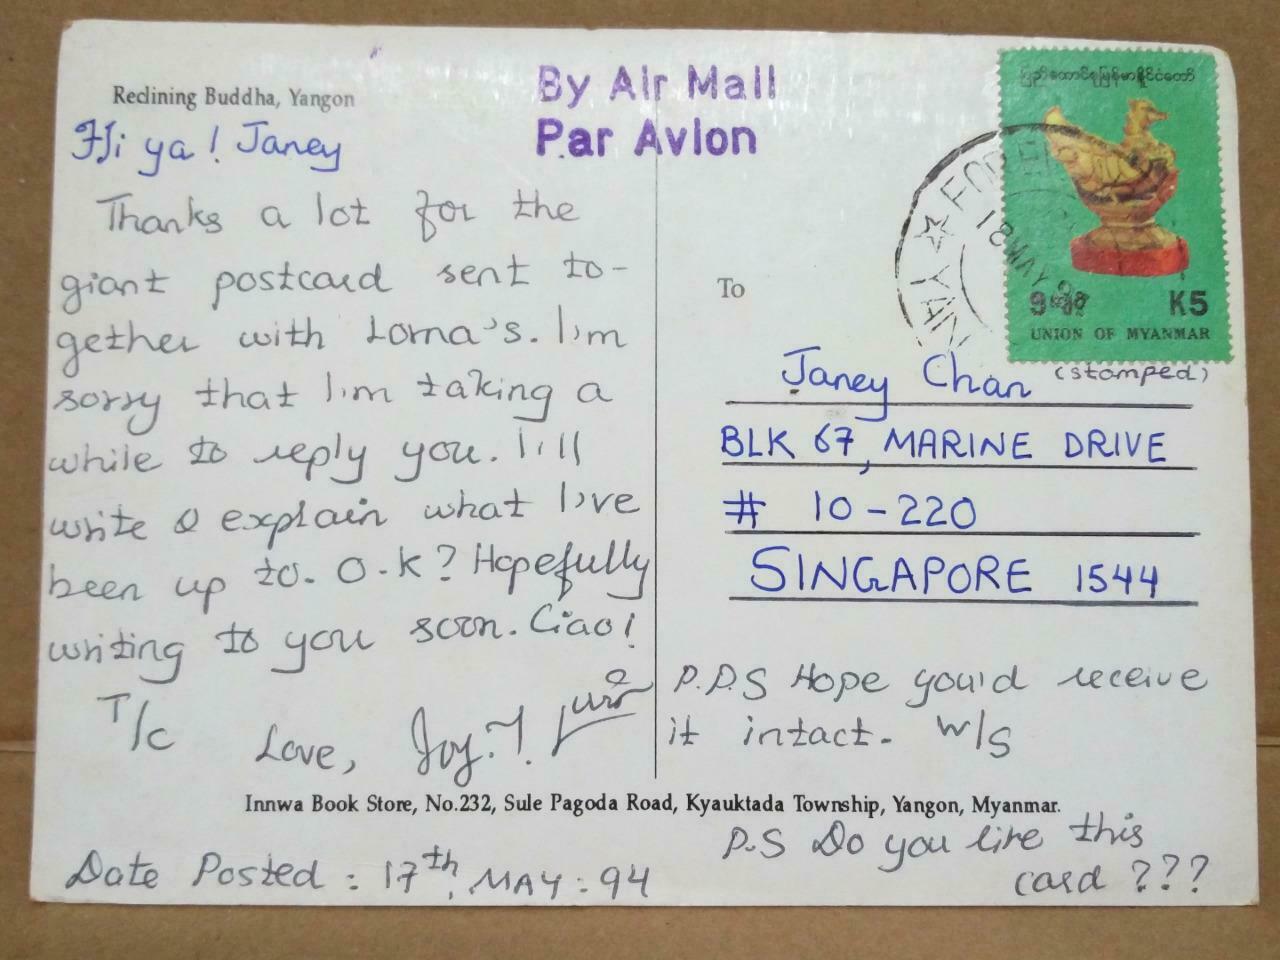 Reclining Buddha, Yangon
By Air Mail
Par Avion
Hi ya! Janey
Thanks a lot for the
giant postcard sent to-
gether with Lorna's. I'm
sorry that I'm taking a
while to reply you. I'll
write & explain what I've
been up to. O.K? Hopefully
writing to you soon. Ciao!
T/c
Love, Joy.T.
ပြည်ထောင်စုမြန်မာနိုင်ငံတော်
၅ကျပ် K5
UNION OF MYANMAR
18 MAY
(stamped)
To
Janey Chan
BLK 67, MARINE DRIVE
# 10-220
SINGAPORE 1544
P.P.S Hope you'd receive
it intact. W/S
Innwa Book Store, No.232, Sule Pagoda Road, Kyauktada Township, Yangon, Myanmar.
P.S Do you like this
card ???
Date Posted : 17th. MAY: 94